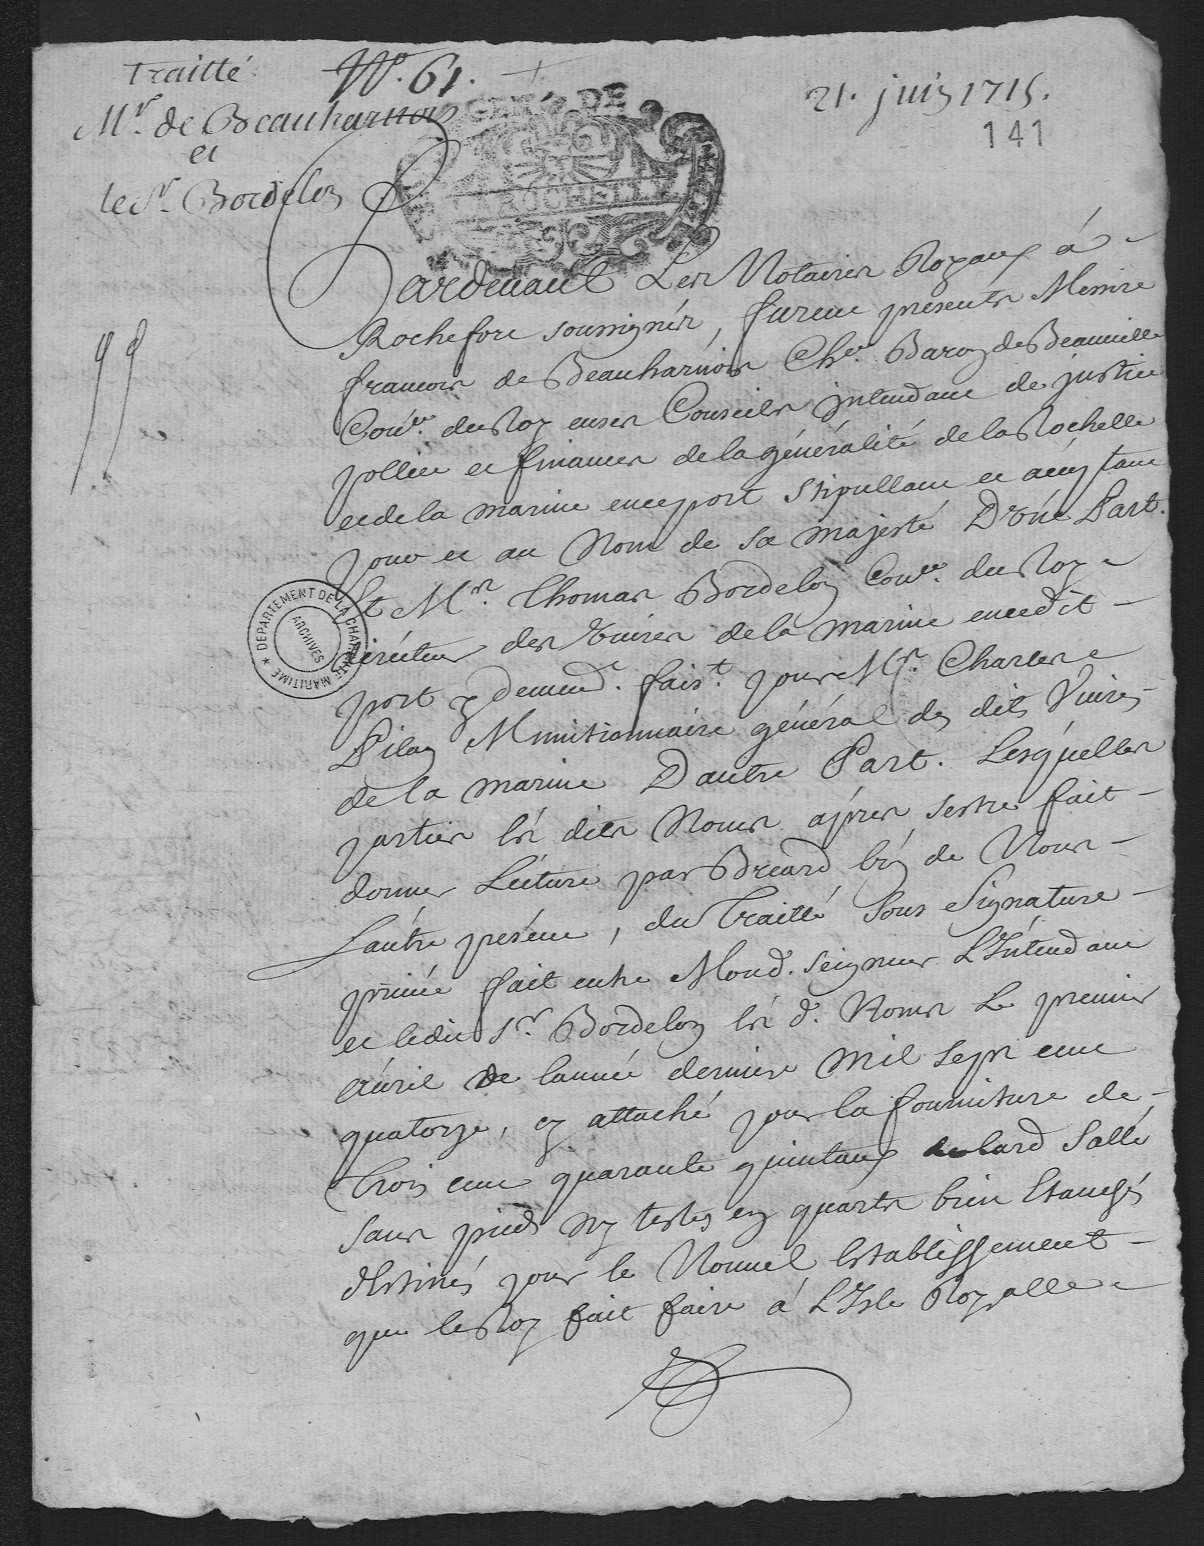 Traitté
Mr. de Beauharnois
et
le Sr. Bordelon
No. 61.
GEN. DE
LA ROCHELLE
21. juin 1715.
141
Pardevant Les Notaires Royaux á
Rochefort soussignés, furent presents Messire
francois de Beauharnois Cher. Baron de Beauville
Coner. du Roy en ses Conseils jntendant de justice
pollice et finances de la généralité de la Rochelle
et de la marine en ce port stipullant et acceptant
pour et au Nom de sa majesté D'une Part.
Et Mr. Thomas Bordelon Coner. du Roy
directeur des vivres de la marine en cedit
port y demeurt. faist. pour Mr. Charles
Pilon Munitionnaire général des dits Vivres
de la marine D'autre Part. Lesquelles
parties és dits Noms aprés s'estre fait
donner Lécture par Breard L'un de Nous
L'autre présent, du Traitté sous Signature
privée fait entre Mond. seigneur L'Intendant
et ledit Sr. Bordelon és d. Noms le premier
Avril de l'année derniere mil sept cent
quatorze, cy attaché pour la fourniture de
trois cent quarante quintaux de lard Sallé
sans pieds ny testes en quarts bien Etanchés
déstinés pour le Nouvel Establissement
que le Roy fait faire á L'Isle Royalle
DEPARTEMENT DE LA CHARENTE MARITIME
ARCHIVES